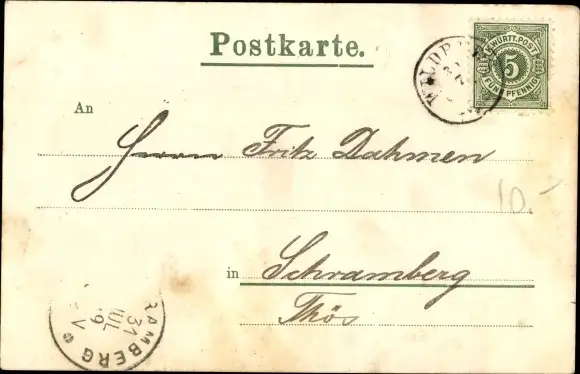 Postkarte.
K. WÜRTT. POST
5
FÜNF PFENNIG
WILDB
An
Herrn Fritz Dahmen
10.-
in Schramberg
RAMBERG
31
JUL
9
V